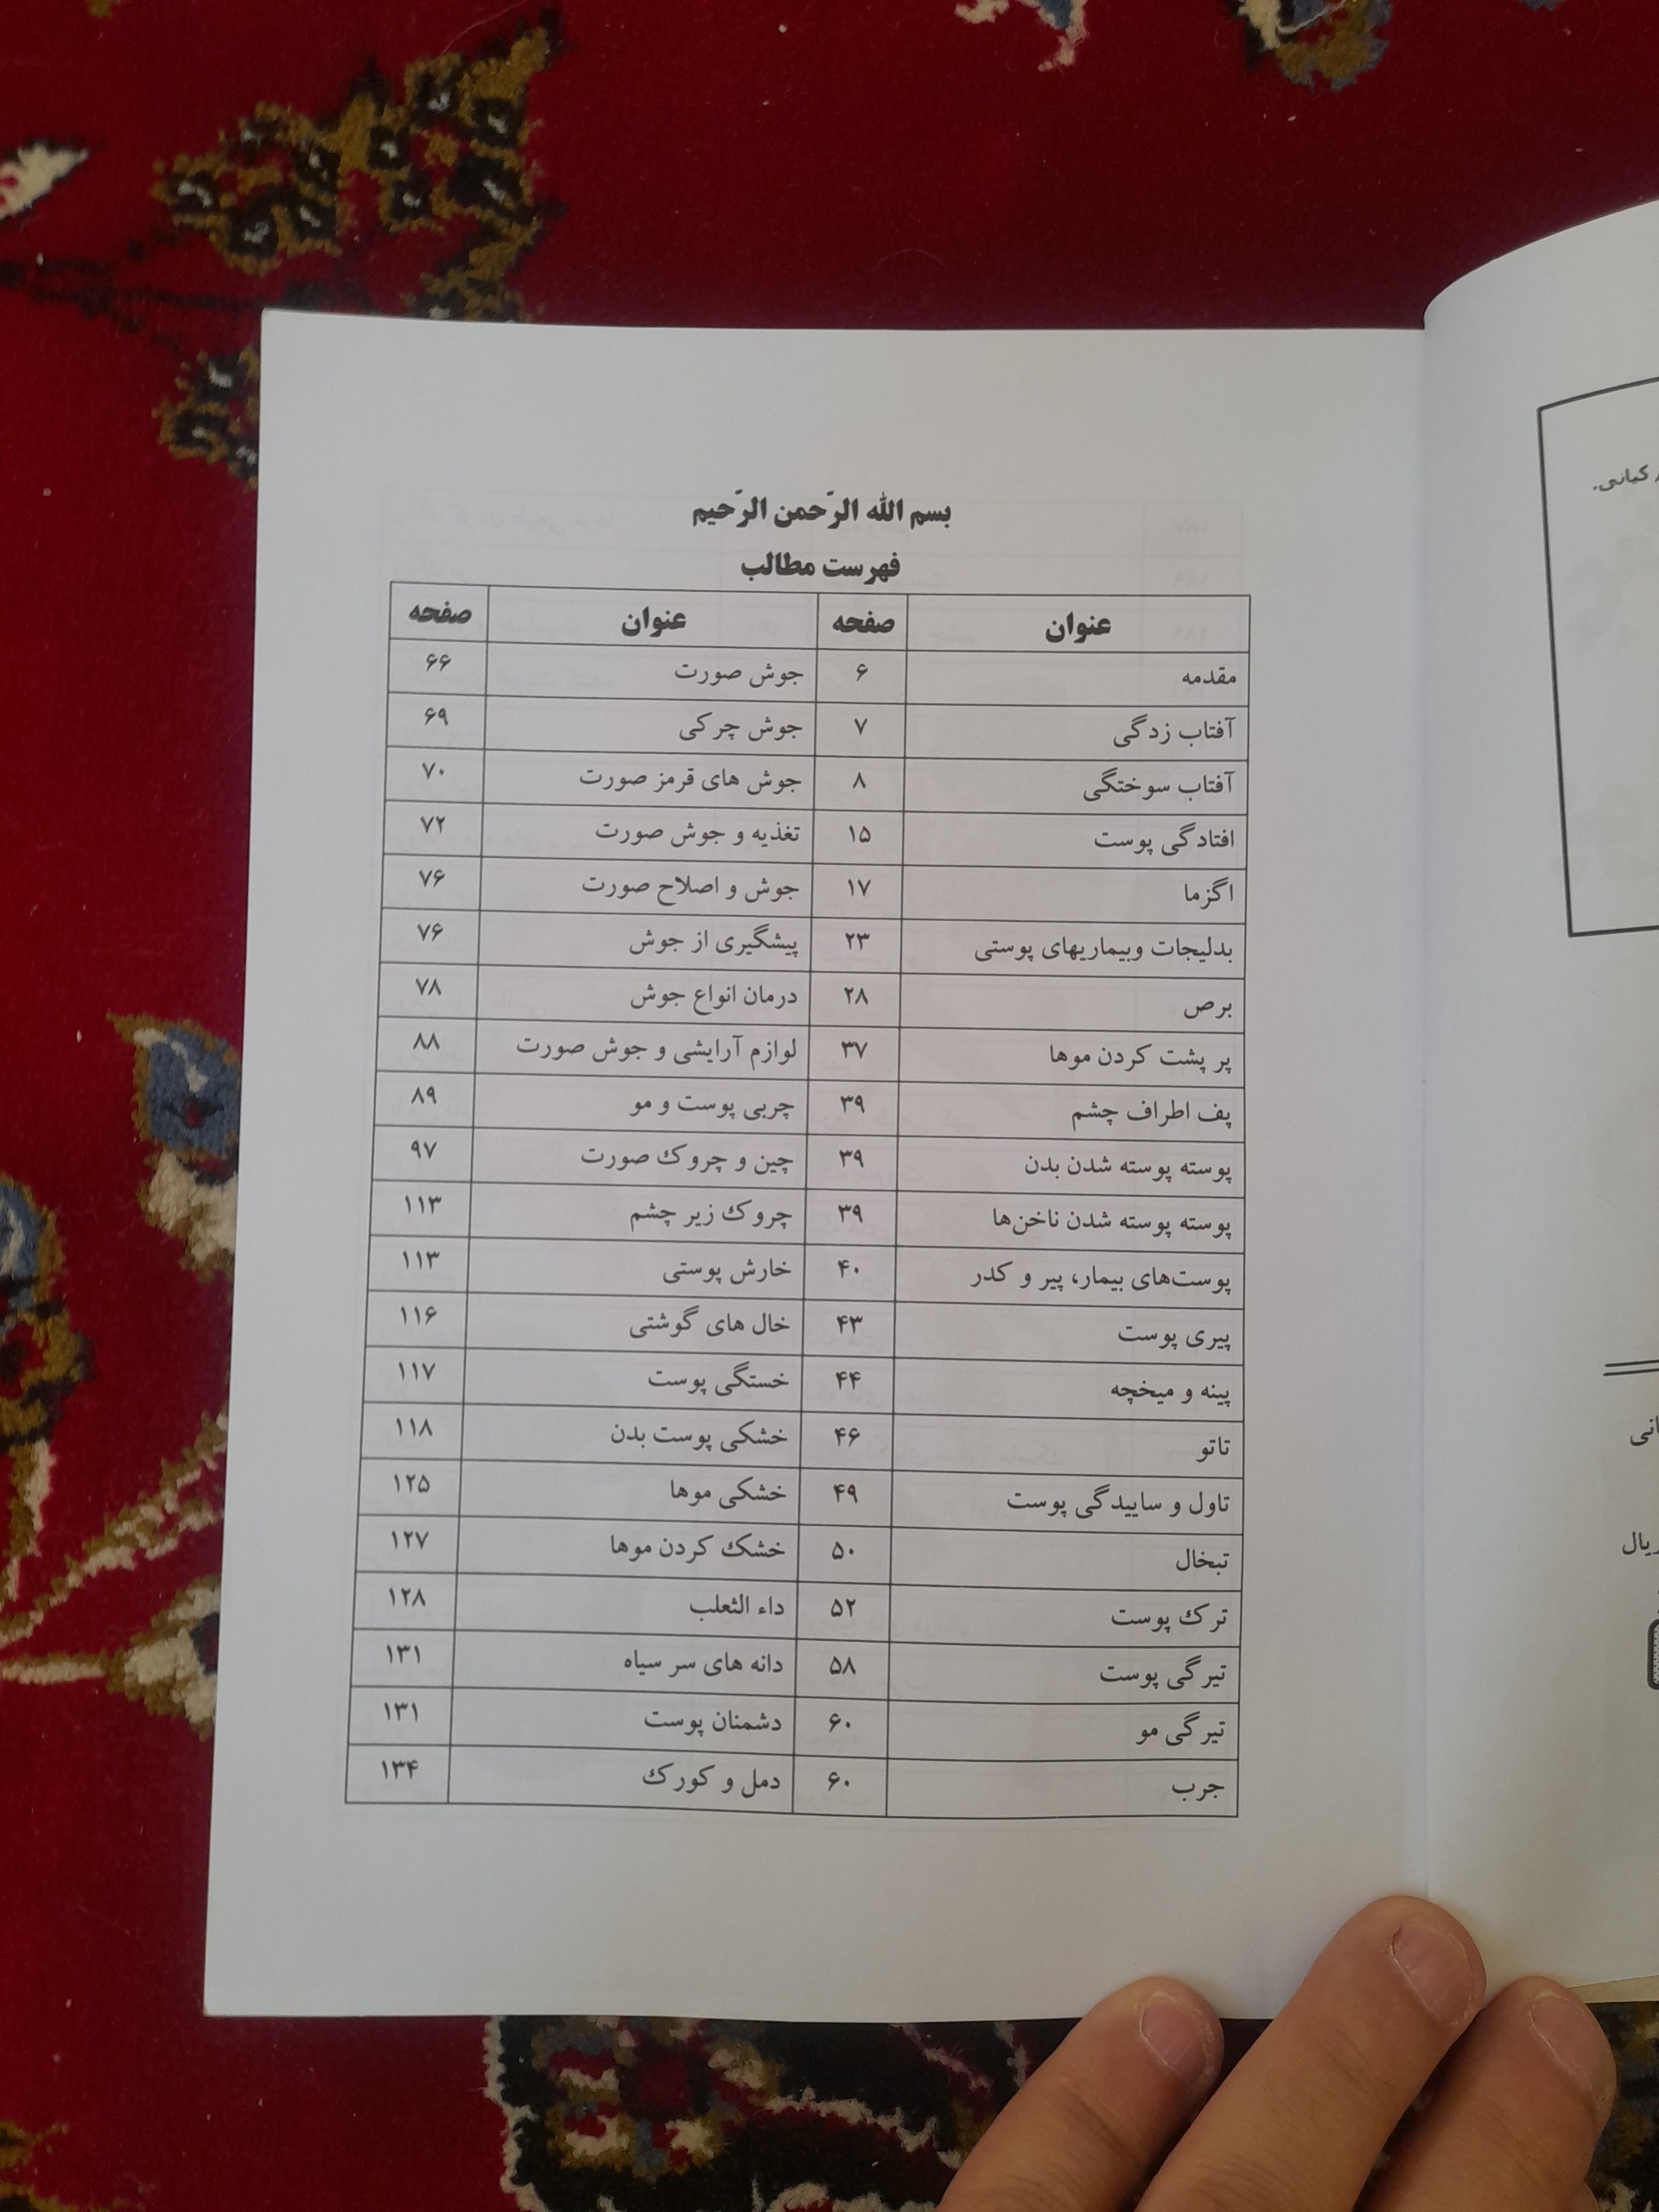 بسم الله الرّحمن الرّحیم
فهرست مطالب
عنوان صفحه عنوان صفحه
مقدمه ۶ جوش صورت ۶۶
آفتاب زدگی ۷ جوش چرکی ۶۹
آفتاب سوختگی ۸ جوش های قرمز صورت ۷۰
افتادگی پوست ۱۵ تغذیه و جوش صورت ۷۲
اگزما ۱۷ جوش و اصلاح صورت ۷۶
بدلیجات وبیماریهای پوستی ۲۳ پیشگیری از جوش ۷۶
برص ۲۸ درمان انواع جوش ۷۸
پر پشت کردن موها ۳۷ لوازم آرایشی و جوش صورت ۸۸
پف اطراف چشم ۳۹ چربی پوست و مو ۸۹
پوسته پوسته شدن بدن ۳۹ چین و چروک صورت ۹۷
پوسته پوسته شدن ناخن‌ها ۳۹ چروک زیر چشم ۱۱۳
پوست‌های بیمار، پیر و کدر ۴۰ خارش پوستی ۱۱۳
پیری پوست ۴۳ خال های گوشتی ۱۱۶
پینه و میخچه ۴۴ خستگی پوست ۱۱۷
تاتو ۴۶ خشکی پوست بدن ۱۱۸
تاول و ساییدگی پوست ۴۹ خشکی موها ۱۲۵
تبخال ۵۰ خشک کردن موها ۱۲۷
ترک پوست ۵۲ داء الثعلب ۱۲۸
تیرگی پوست ۵۸ دانه های سر سیاه ۱۳۱
تیرگی مو ۶۰ دشمنان پوست ۱۳۱
جرب ۶۰ دمل و کورک ۱۳۴
کیانی.
ریال